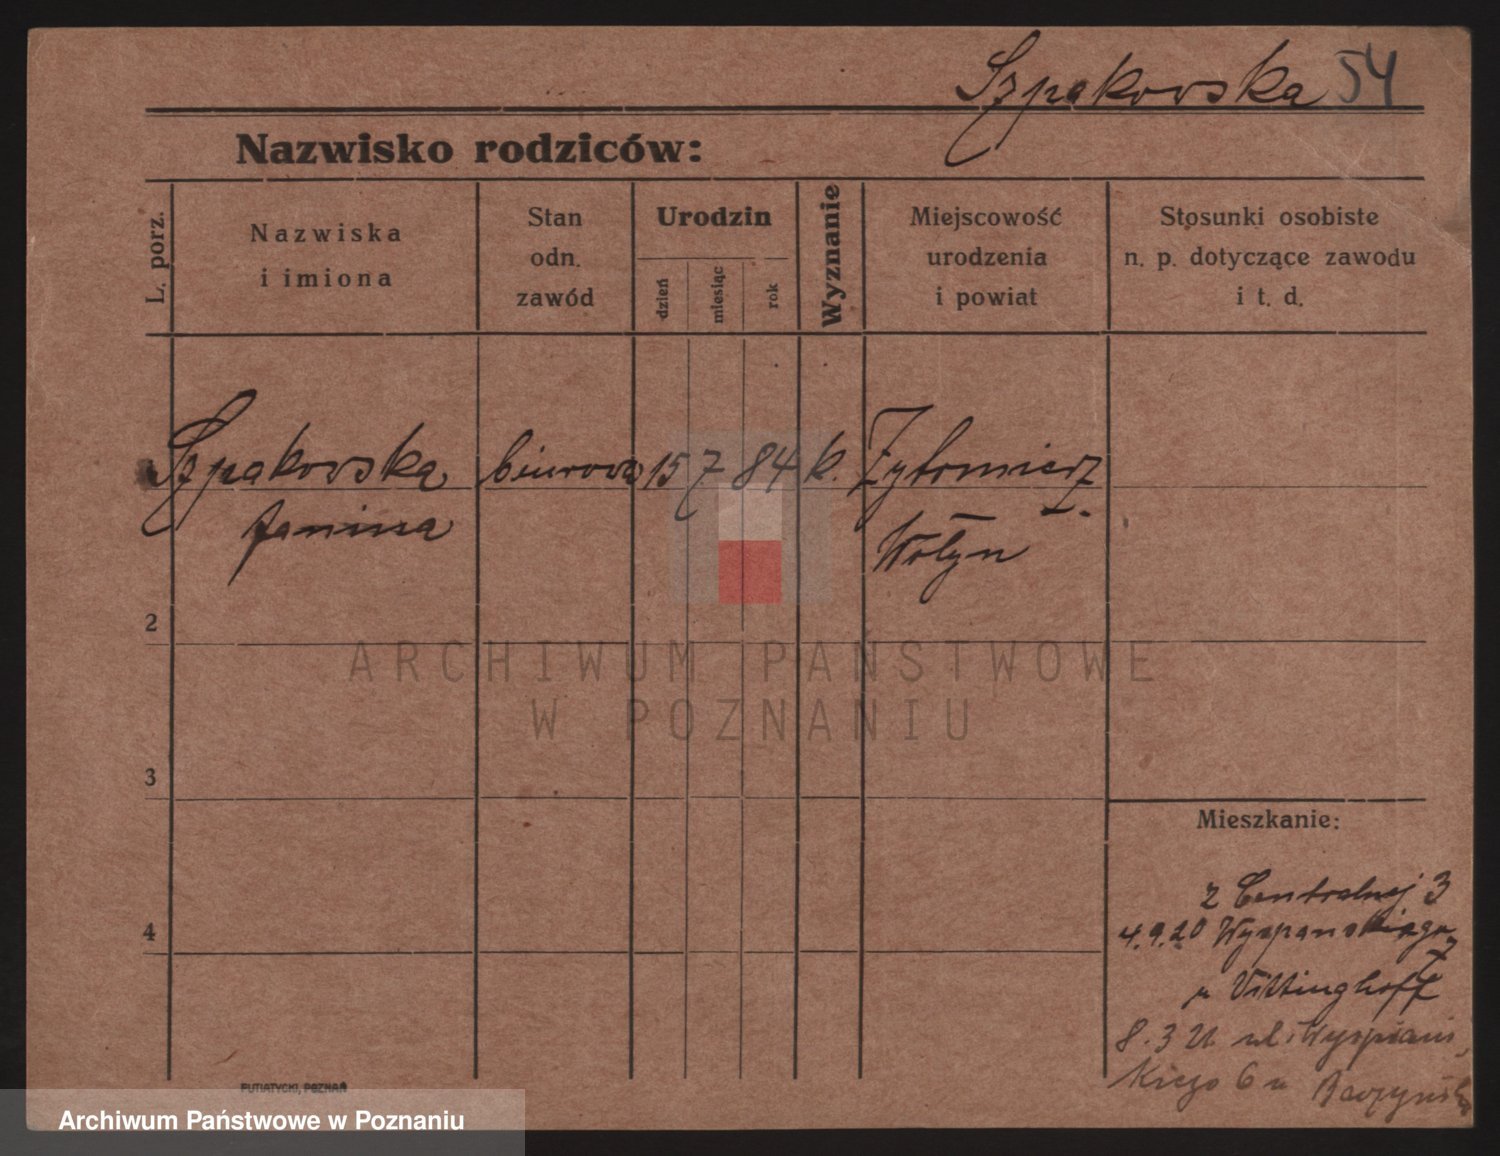 Szpakowska 54
Nazwisko rodziców:
L. porz.
Nazwiska
i imiona
Stan
odn.
zawód
Urodzin
dzień
miesiąc
rok
Wyznanie
Miejscowość
urodzenia
i powiat
Stosunki osobiste
n. p. dotyczące zawodu
i t. d.
Szpakowska biurowa 15 7 84 k. Żytomierz
Janina Wołyn
2
3
4
ARCHIWUM PAŃSTWOWE
W POZNANIU
Mieszkanie:
z Centralnej 3
4.9.20 Wyspianskiego 7
u Vittinghoff
8.3 21. ul. Wyspians
kiego 6 u Baczyńska
PUTIATYCKI, POZNAŃ
Archiwum Państwowe w Poznaniu